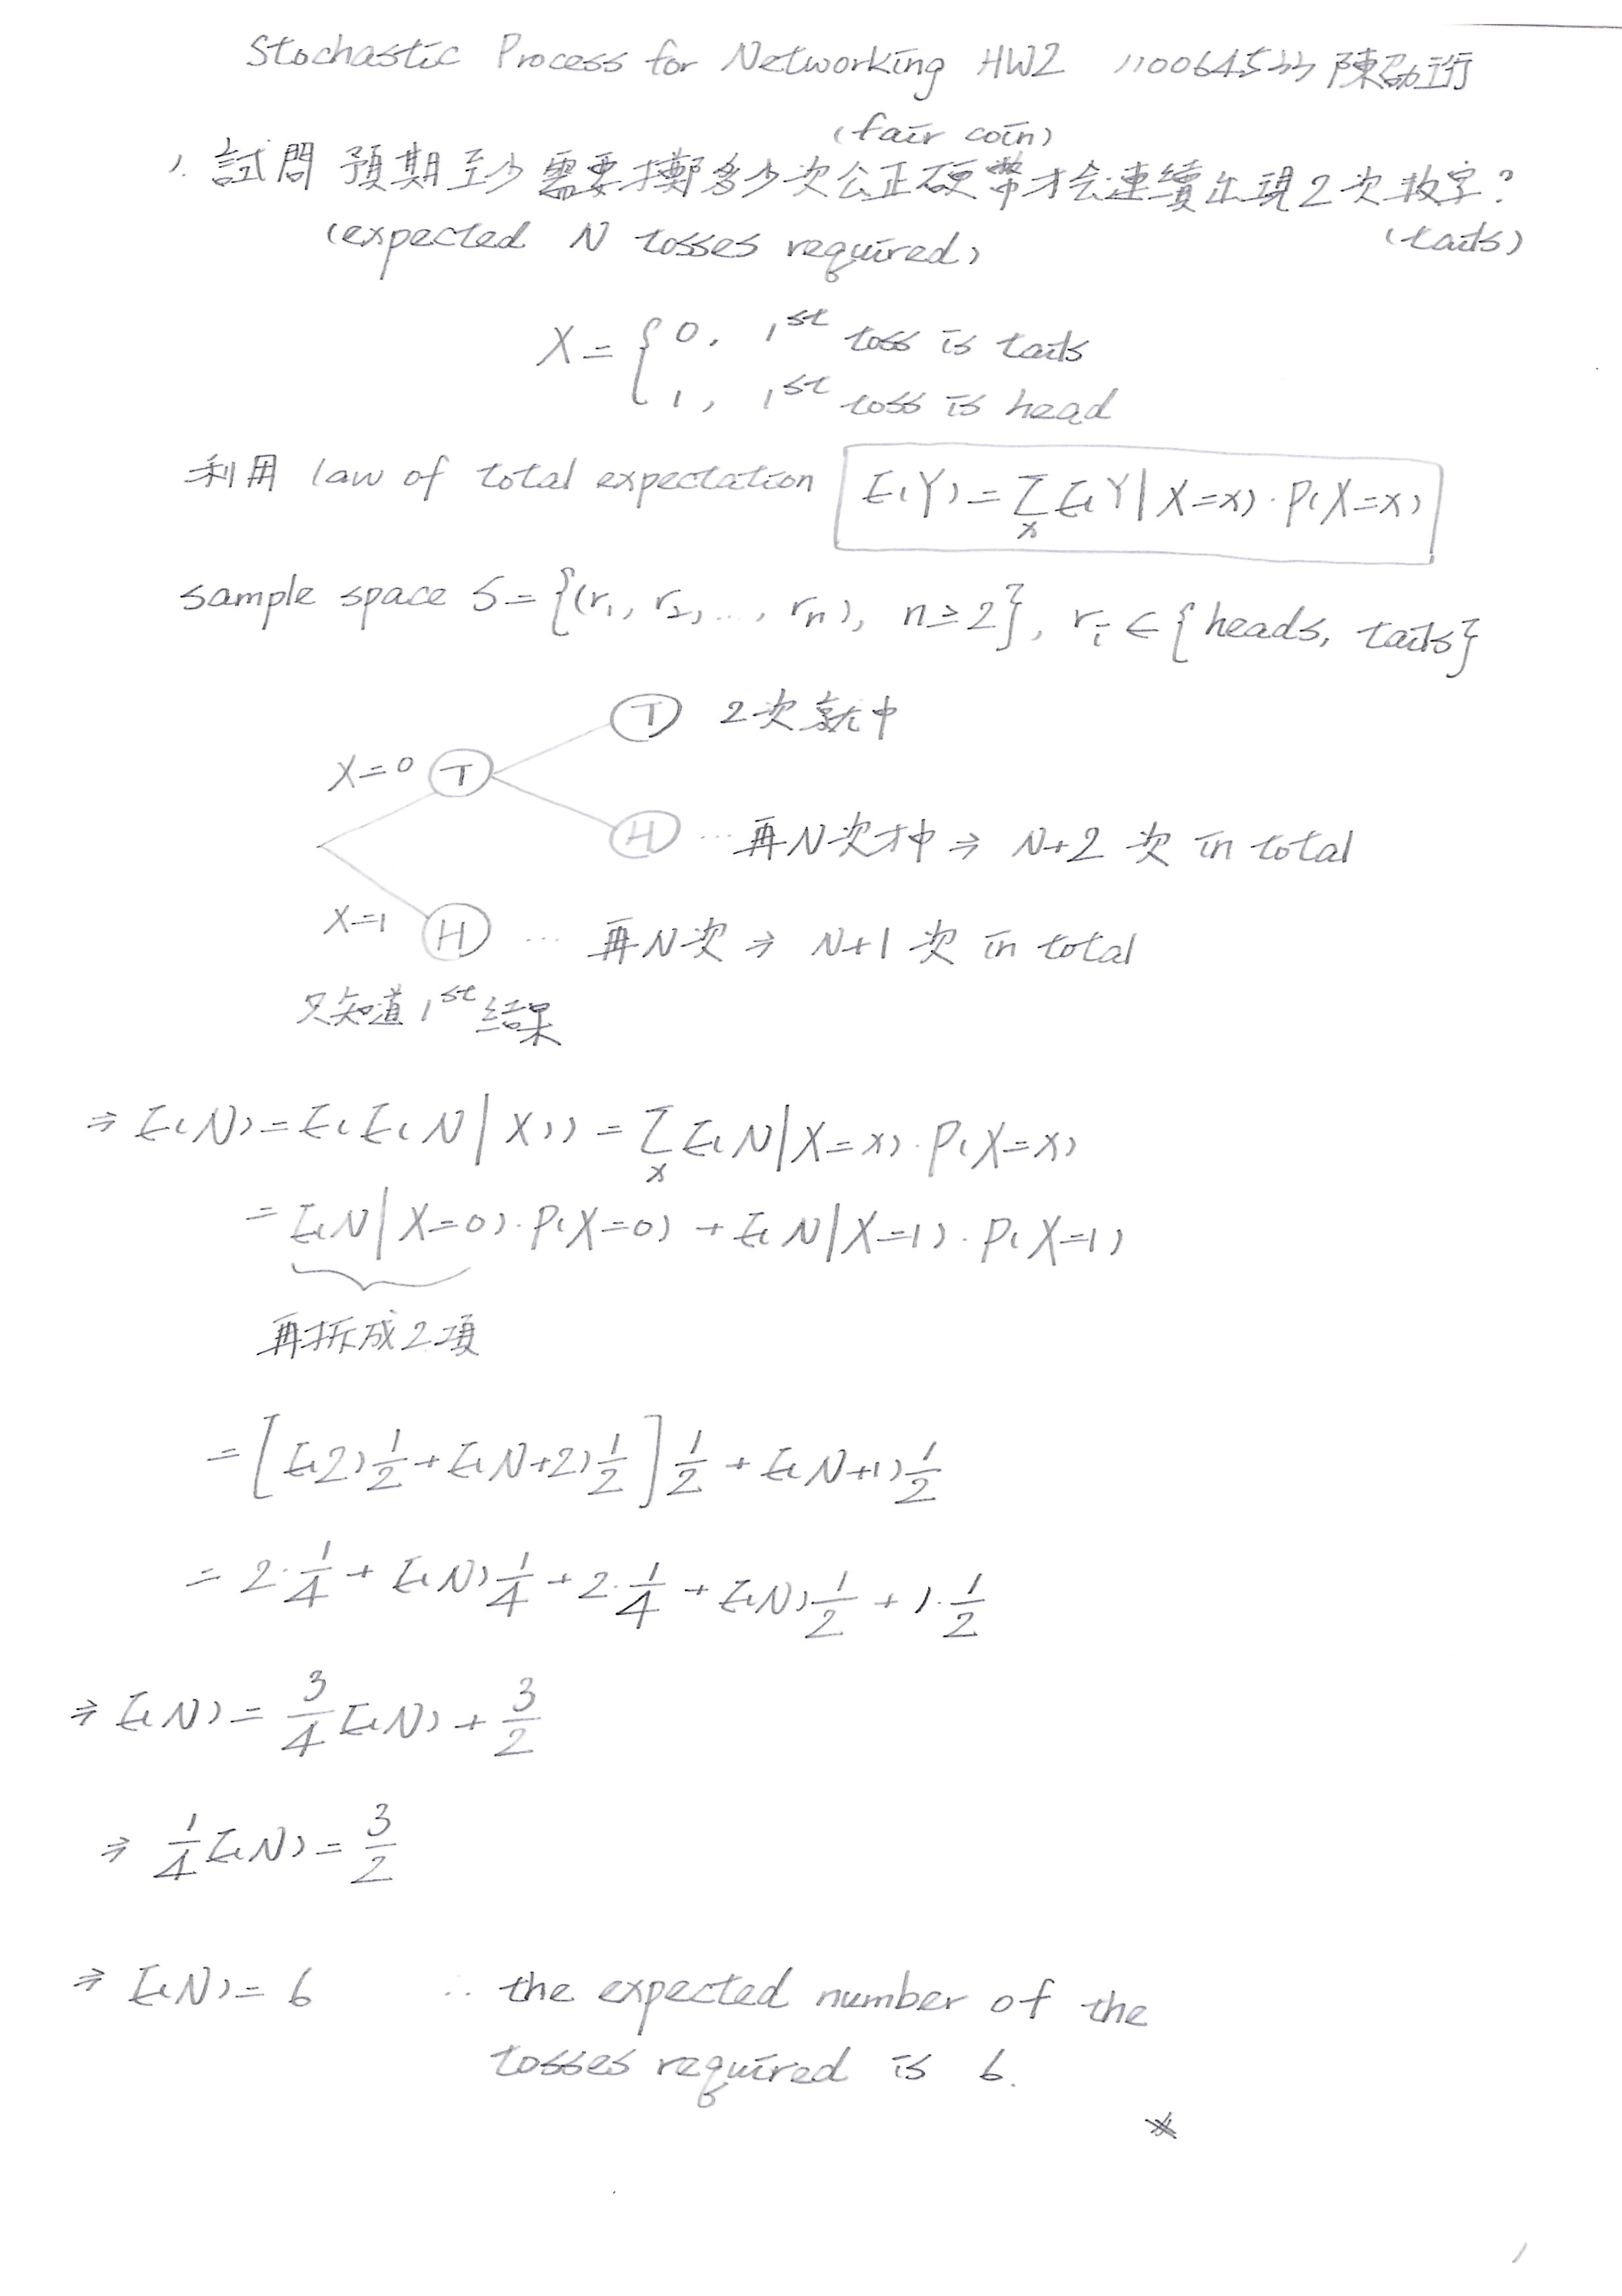 Stochastic Process for Networking HW2 110064533 陳劭珩
(fair coin)
1. 試問 預期至少需要擲多少次公正硬幣才会連續出現2次数字?
(expected N tosses required) (tails)
X = { 0, 1st toss is tails
1, 1st toss is head
利用 law of total expectation E(Y) = Σx E(Y|X=x)·P(X=x)
sample space S = {(r1, r2, ..., rn), n≥2}, ri ∈ {heads, tails}
T 2次就中
X=0 T
H ... 再N次才中 ⇒ N+2 次 in total
X=1 H ... 再N次 ⇒ N+1 次 in total
只知道 1st 结果
⇒ E(N) = E(E(N|X)) = Σx E(N|X=x)·P(X=x)
= E(N|X=0)·P(X=0) + E(N|X=1)·P(X=1)
再拆成2項
= [E(2)1/2 + E(N+2)1/2]1/2 + E(N+1)1/2
= 2·1/4 + E(N)1/4 + 2·1/4 + E(N)1/2 + 1·1/2
⇒ E(N) = 3/4 E(N) + 3/2
⇒ 1/4 E(N) = 3/2
⇒ E(N) = 6 ∴ the expected number of the
tosses required is 6.
1